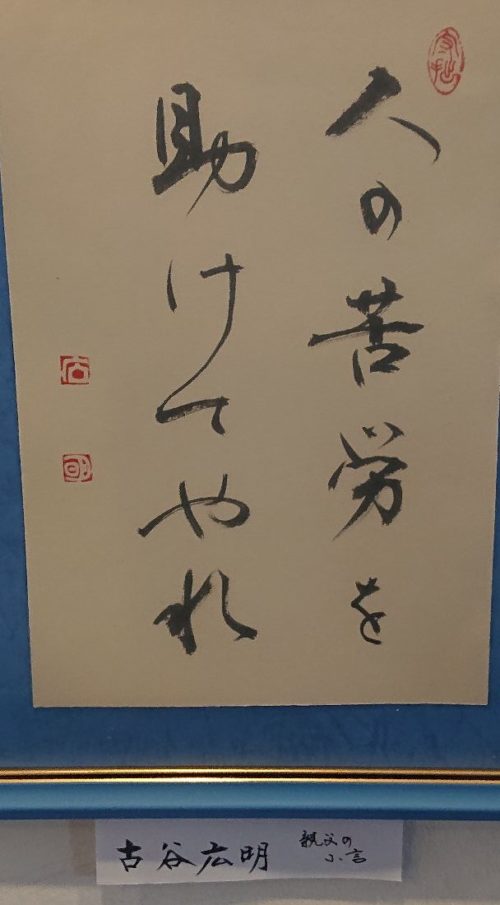 人の苦労を
助けてやれ
古谷広明
親父の
小言